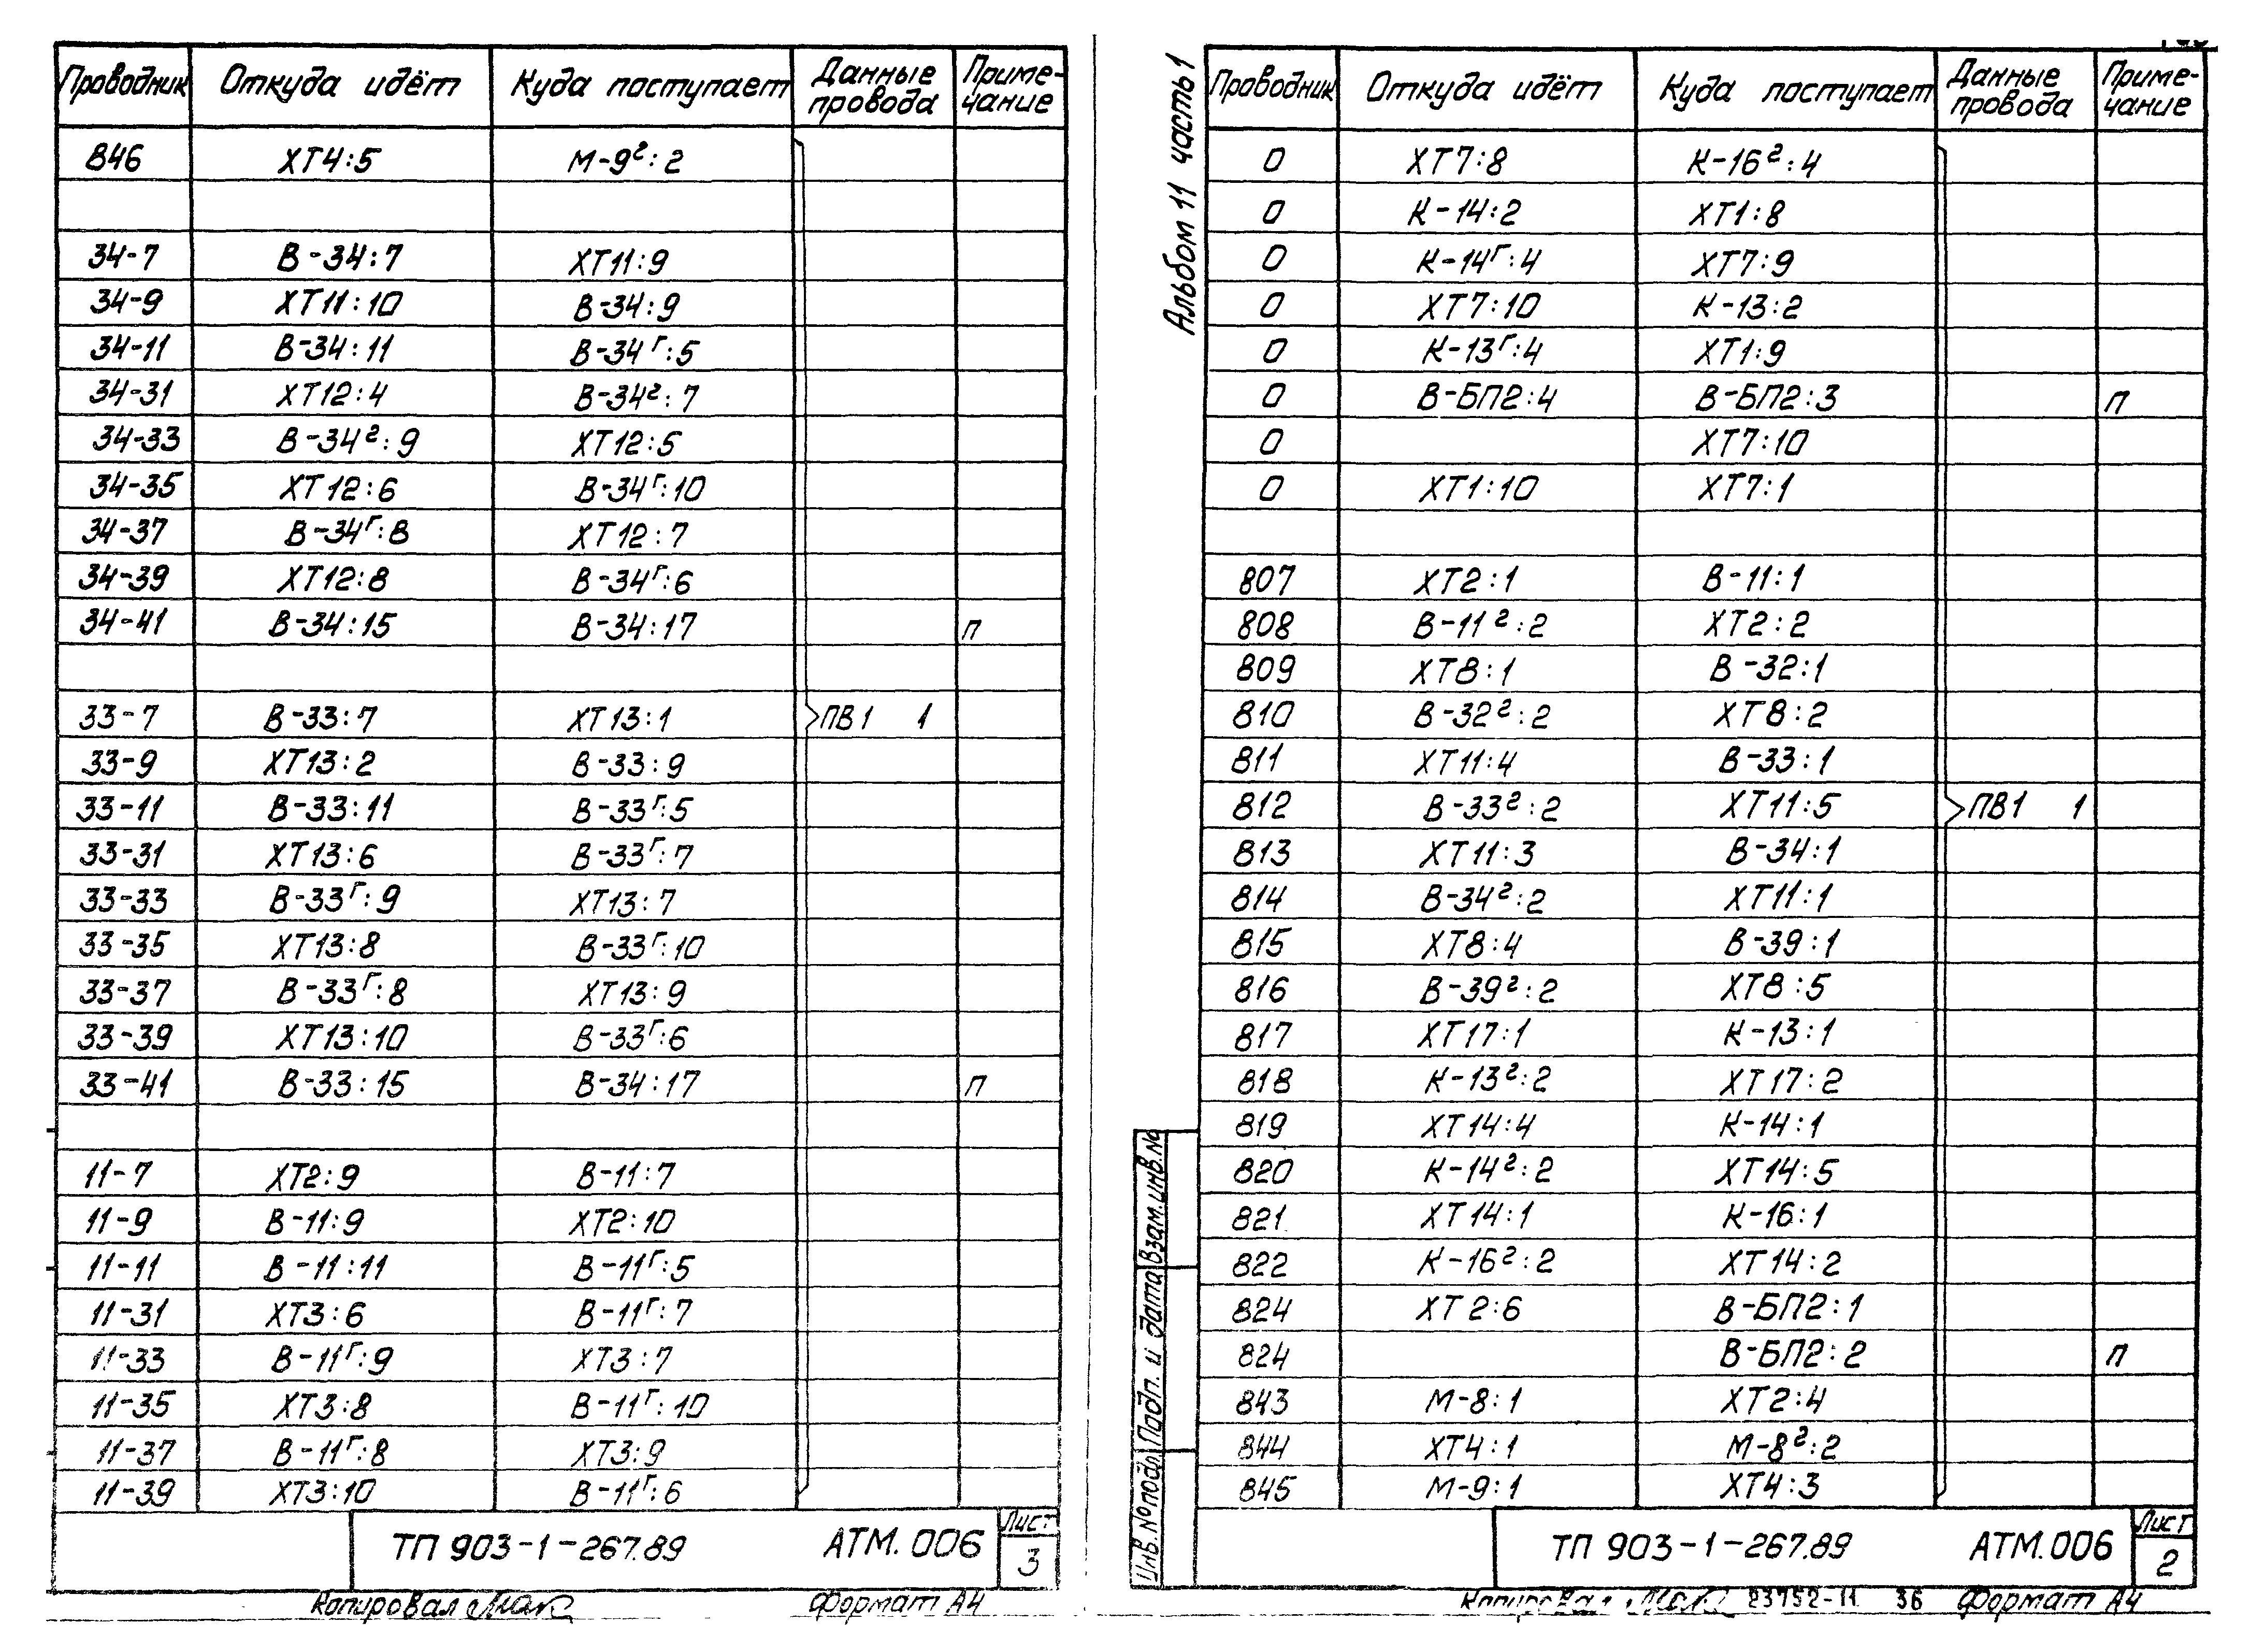 Проводник Откуда идёт Куда поступает Данные провода Приме-чание
846 ХТ4:5 М-9²:2
34-7 В-34:7 ХТ11:9
34-9 ХТ11:10 В-34:9
34-11 В-34:11 В-34Г:5
34-31 ХТ12:4 В-34²:7
34-33 В-34²:9 ХТ12:5
34-35 ХТ12:6 В-34Г:10
34-37 В-34Г:8 ХТ12:7
34-39 ХТ12:8 В-34Г:6
34-41 В-34:15 В-34:17 п
33-7 В-33:7 ХТ13:1 ПВ1 1
33-9 ХТ13:2 В-33:9
33-11 В-33:11 В-33Г:5
33-31 ХТ13:6 В-33Г:7
33-33 В-33Г:9 ХТ13:7
33-35 ХТ13:8 В-33Г:10
33-37 В-33Г:8 ХТ13:9
33-39 ХТ13:10 В-33Г:6
33-41 В-33:15 В-34:17 п
11-7 ХТ2:9 В-11:7
11-9 В-11:9 ХТ2:10
11-11 В-11:11 В-11Г:5
11-31 ХТ3:6 В-11Г:7
11-33 В-11Г:9 ХТ3:7
11-35 ХТ3:8 В-11Г:10
11-37 В-11Г:8 ХТ3:9
11-39 ХТ3:10 В-11Г:6
ТП 903-1-267.89 АТМ.006 Лист 3
Копировал Формат А4
Альбом 11 часть 1
Проводник Откуда идёт Куда поступает Данные провода Приме-чание
0 ХТ7:8 К-16²:4
0 К-14:2 ХТ1:8
0 К-14Г:4 ХТ7:9
0 ХТ7:10 К-13:2
0 К-13Г:4 ХТ1:9
0 В-БП2:4 В-БП2:3 п
0 ХТ7:10
0 ХТ1:10 ХТ7:1
807 ХТ2:1 В-11:1
808 В-11²:2 ХТ2:2
809 ХТ8:1 В-32:1
810 В-32²:2 ХТ8:2
811 ХТ11:4 В-33:1
812 В-33²:2 ХТ11:5 ПВ1 1
813 ХТ11:3 В-34:1
814 В-34²:2 ХТ11:1
815 ХТ8:4 В-39:1
816 В-39²:2 ХТ8:5
817 ХТ17:1 К-13:1
818 К-13²:2 ХТ17:2
819 ХТ14:4 К-14:1
820 К-14²:2 ХТ14:5
821 ХТ14:1 К-16:1
822 К-16²:2 ХТ14:2
824 ХТ2:6 В-БП2:1
824 В-БП2:2 п
843 М-8:1 ХТ2:4
844 ХТ4:1 М-8²:2
845 М-9:1 ХТ4:3
Инв.№подл. Подп. и дата Взам.инв.№
ТП 903-1-267.89 АТМ.006 Лист 2
Копировал 23752-11 36 Формат А4